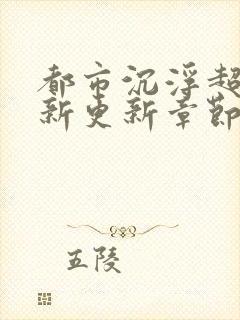 都市沉浮超
新更新章節
五陵